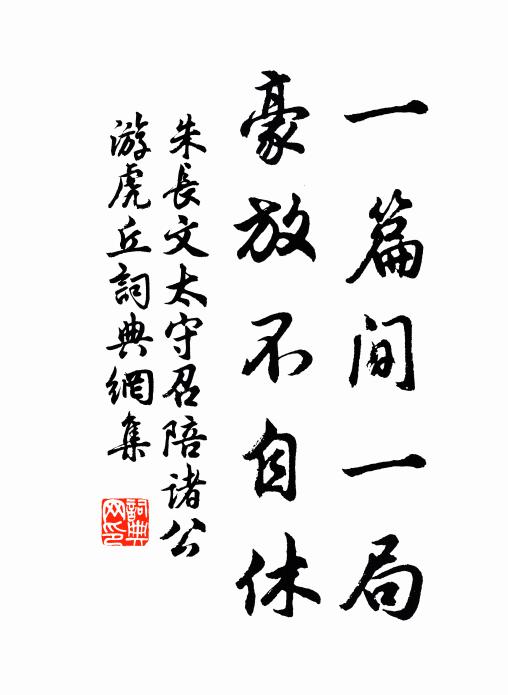 一篇间一局
豪放不自休
朱長文太守召陪诸公
游虎丘詞典網集
詞典网印